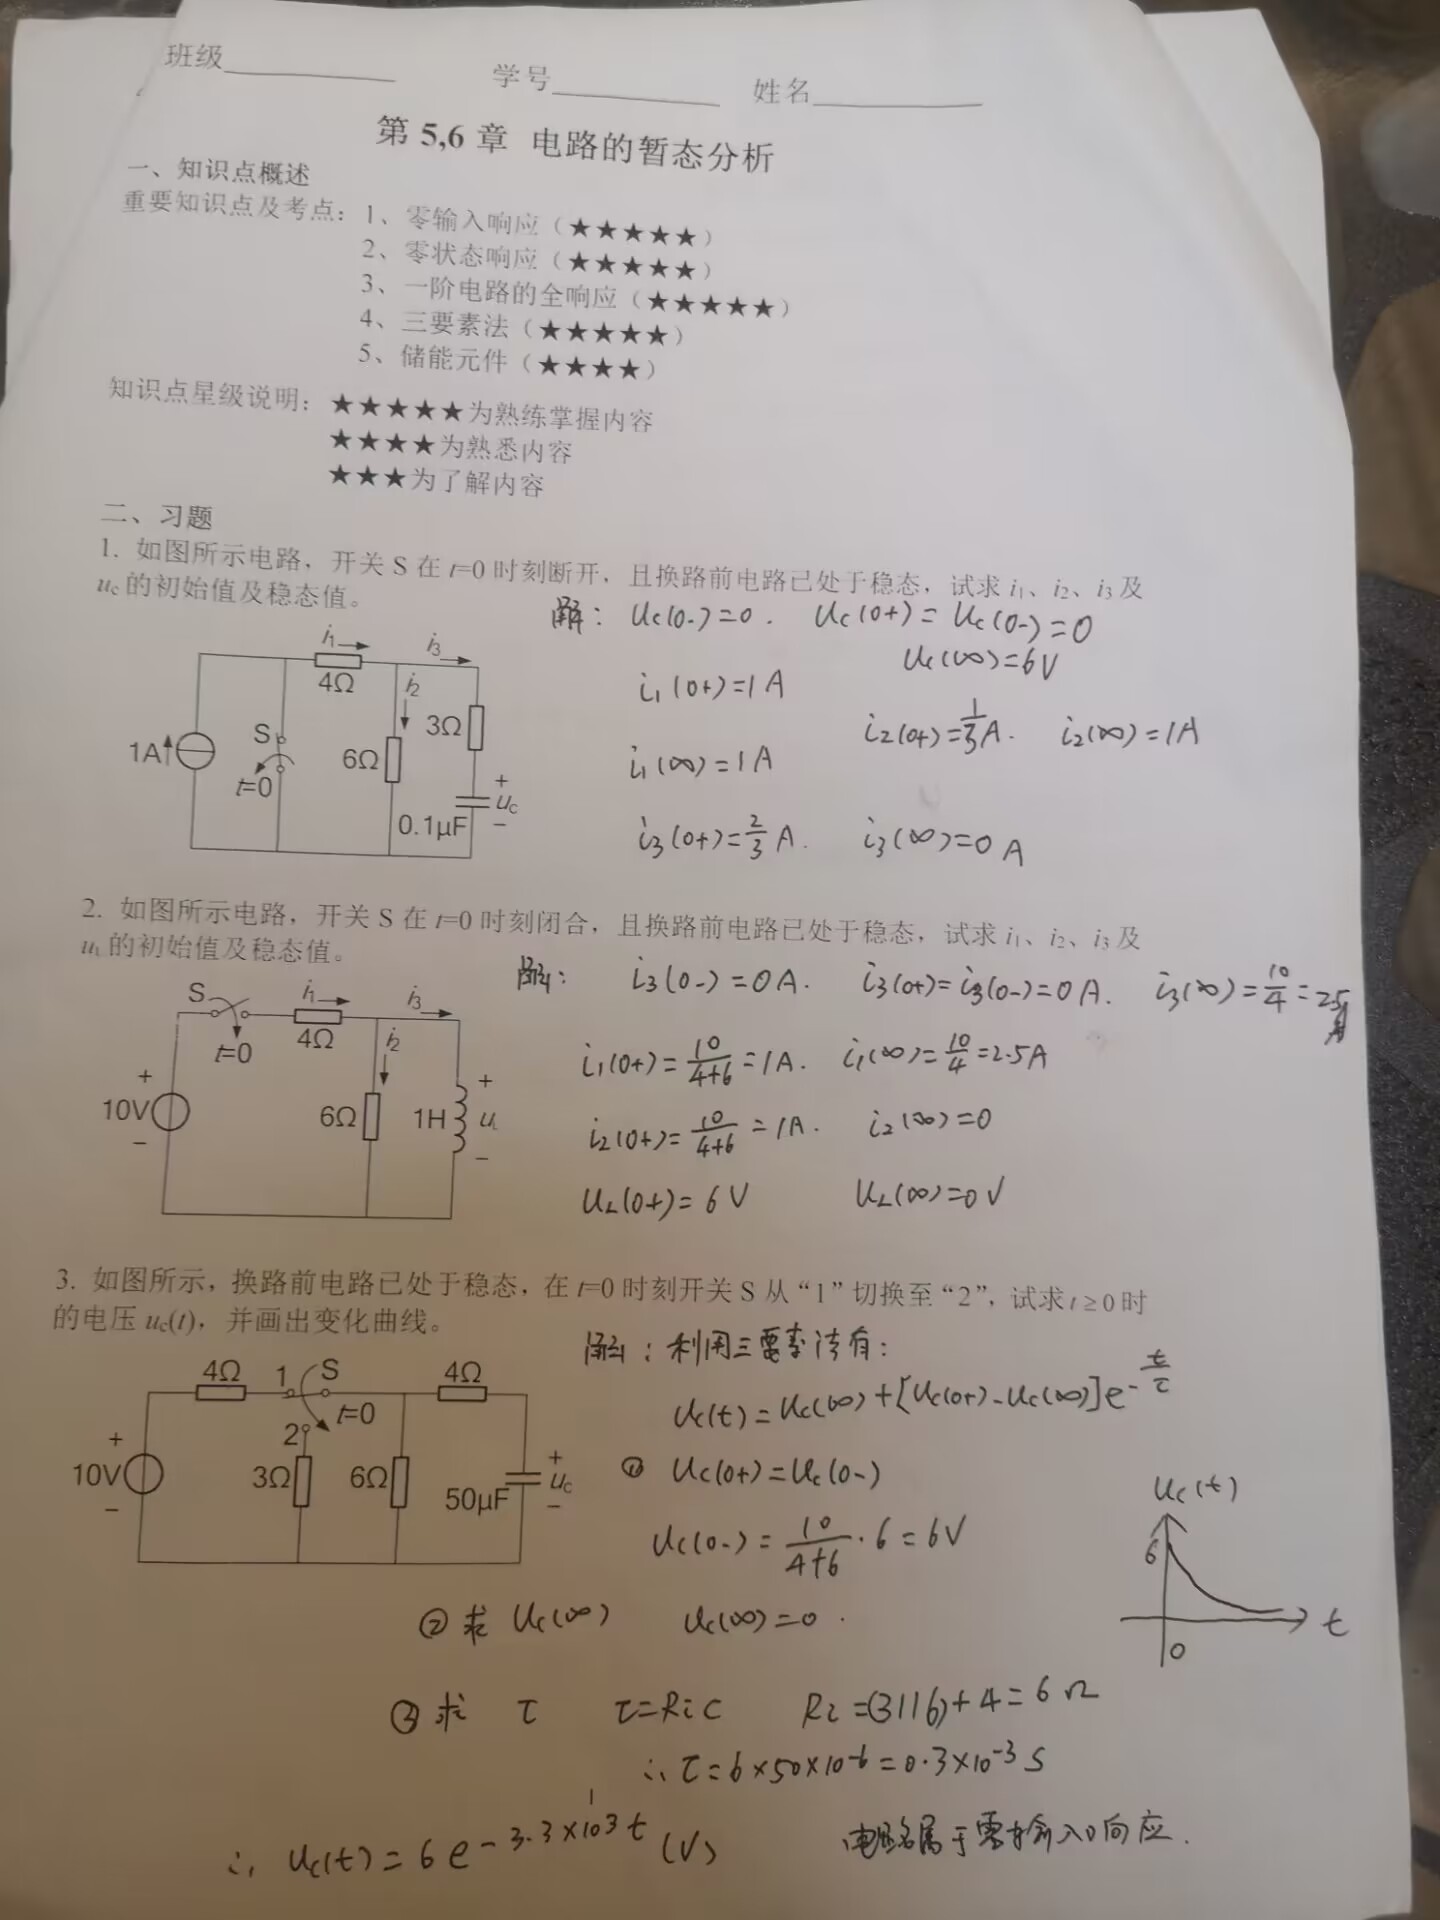 班级 学号 姓名
第 5,6 章 电路的暂态分析
一、知识点概述
重要知识点及考点：1、零输入响应（★★★★★）
2、零状态响应（★★★★★）
3、一阶电路的全响应（★★★★★）
4、三要素法（★★★★★）
5、储能元件（★★★★）
知识点星级说明：★★★★★为熟练掌握内容
★★★★为熟悉内容
★★★为了解内容
二、习题
1. 如图所示电路，开关 S 在 t=0 时刻断开，且换路前电路已处于稳态，试求 i₁、i₂、i₃及
uc 的初始值及稳态值。
解： uc(0-)=0. uc(0+)=uc(0-)=0
uc(∞)=6V
i₁ 4Ω i₃ i₂ 3Ω 6Ω S t=0 1A 0.1μF + uC −
i₁(0+)=1A
i₂(0+)=1/3A. i₂(∞)=1A
i₁(∞)=1A
i₃(0+)=2/3 A. i₃(∞)=0A
2. 如图所示电路，开关 S 在 t=0 时刻闭合，且换路前电路已处于稳态，试求 i₁、i₂、i₃及
uL 的初始值及稳态值。
解： i₃(0-)=0A. i₃(0+)=i₃(0-)=0A. i₃(∞)=10/4=2.5A
S i₁ i₃ t=0 4Ω i₂ + 10V − 6Ω 1H + uL −
i₁(0+)=10/(4+6)=1A. i₁(∞)=10/4=2.5A
i₂(0+)=10/(4+6)=1A. i₂(∞)=0
uL(0+)=6V uL(∞)=0V
3. 如图所示，换路前电路已处于稳态，在 t=0 时刻开关 S 从“1”切换至“2”，试求 t≥0 时
的电压 uc(t)，并画出变化曲线。
解：利用三要素法有：
4Ω 1 S 4Ω t=0 2 + 10V − 3Ω 6Ω 50μF + uC −
uc(t)=uc(∞)+[uc(0+)-uc(∞)]e^-t/τ
① uc(0+)=uc(0-)
uc(t)
uc(0-)=10/(4+6)·6=6V
6
② 求 uc(∞) uc(∞)=0.
t
0
③ 求 τ τ=RiC Ri=(3||6)+4=6Ω
∴ τ=6×50×10^-6=0.3×10^-3 S
∴ uc(t)=6e^-3.3×10^3t (V) 电路属于零输入响应.